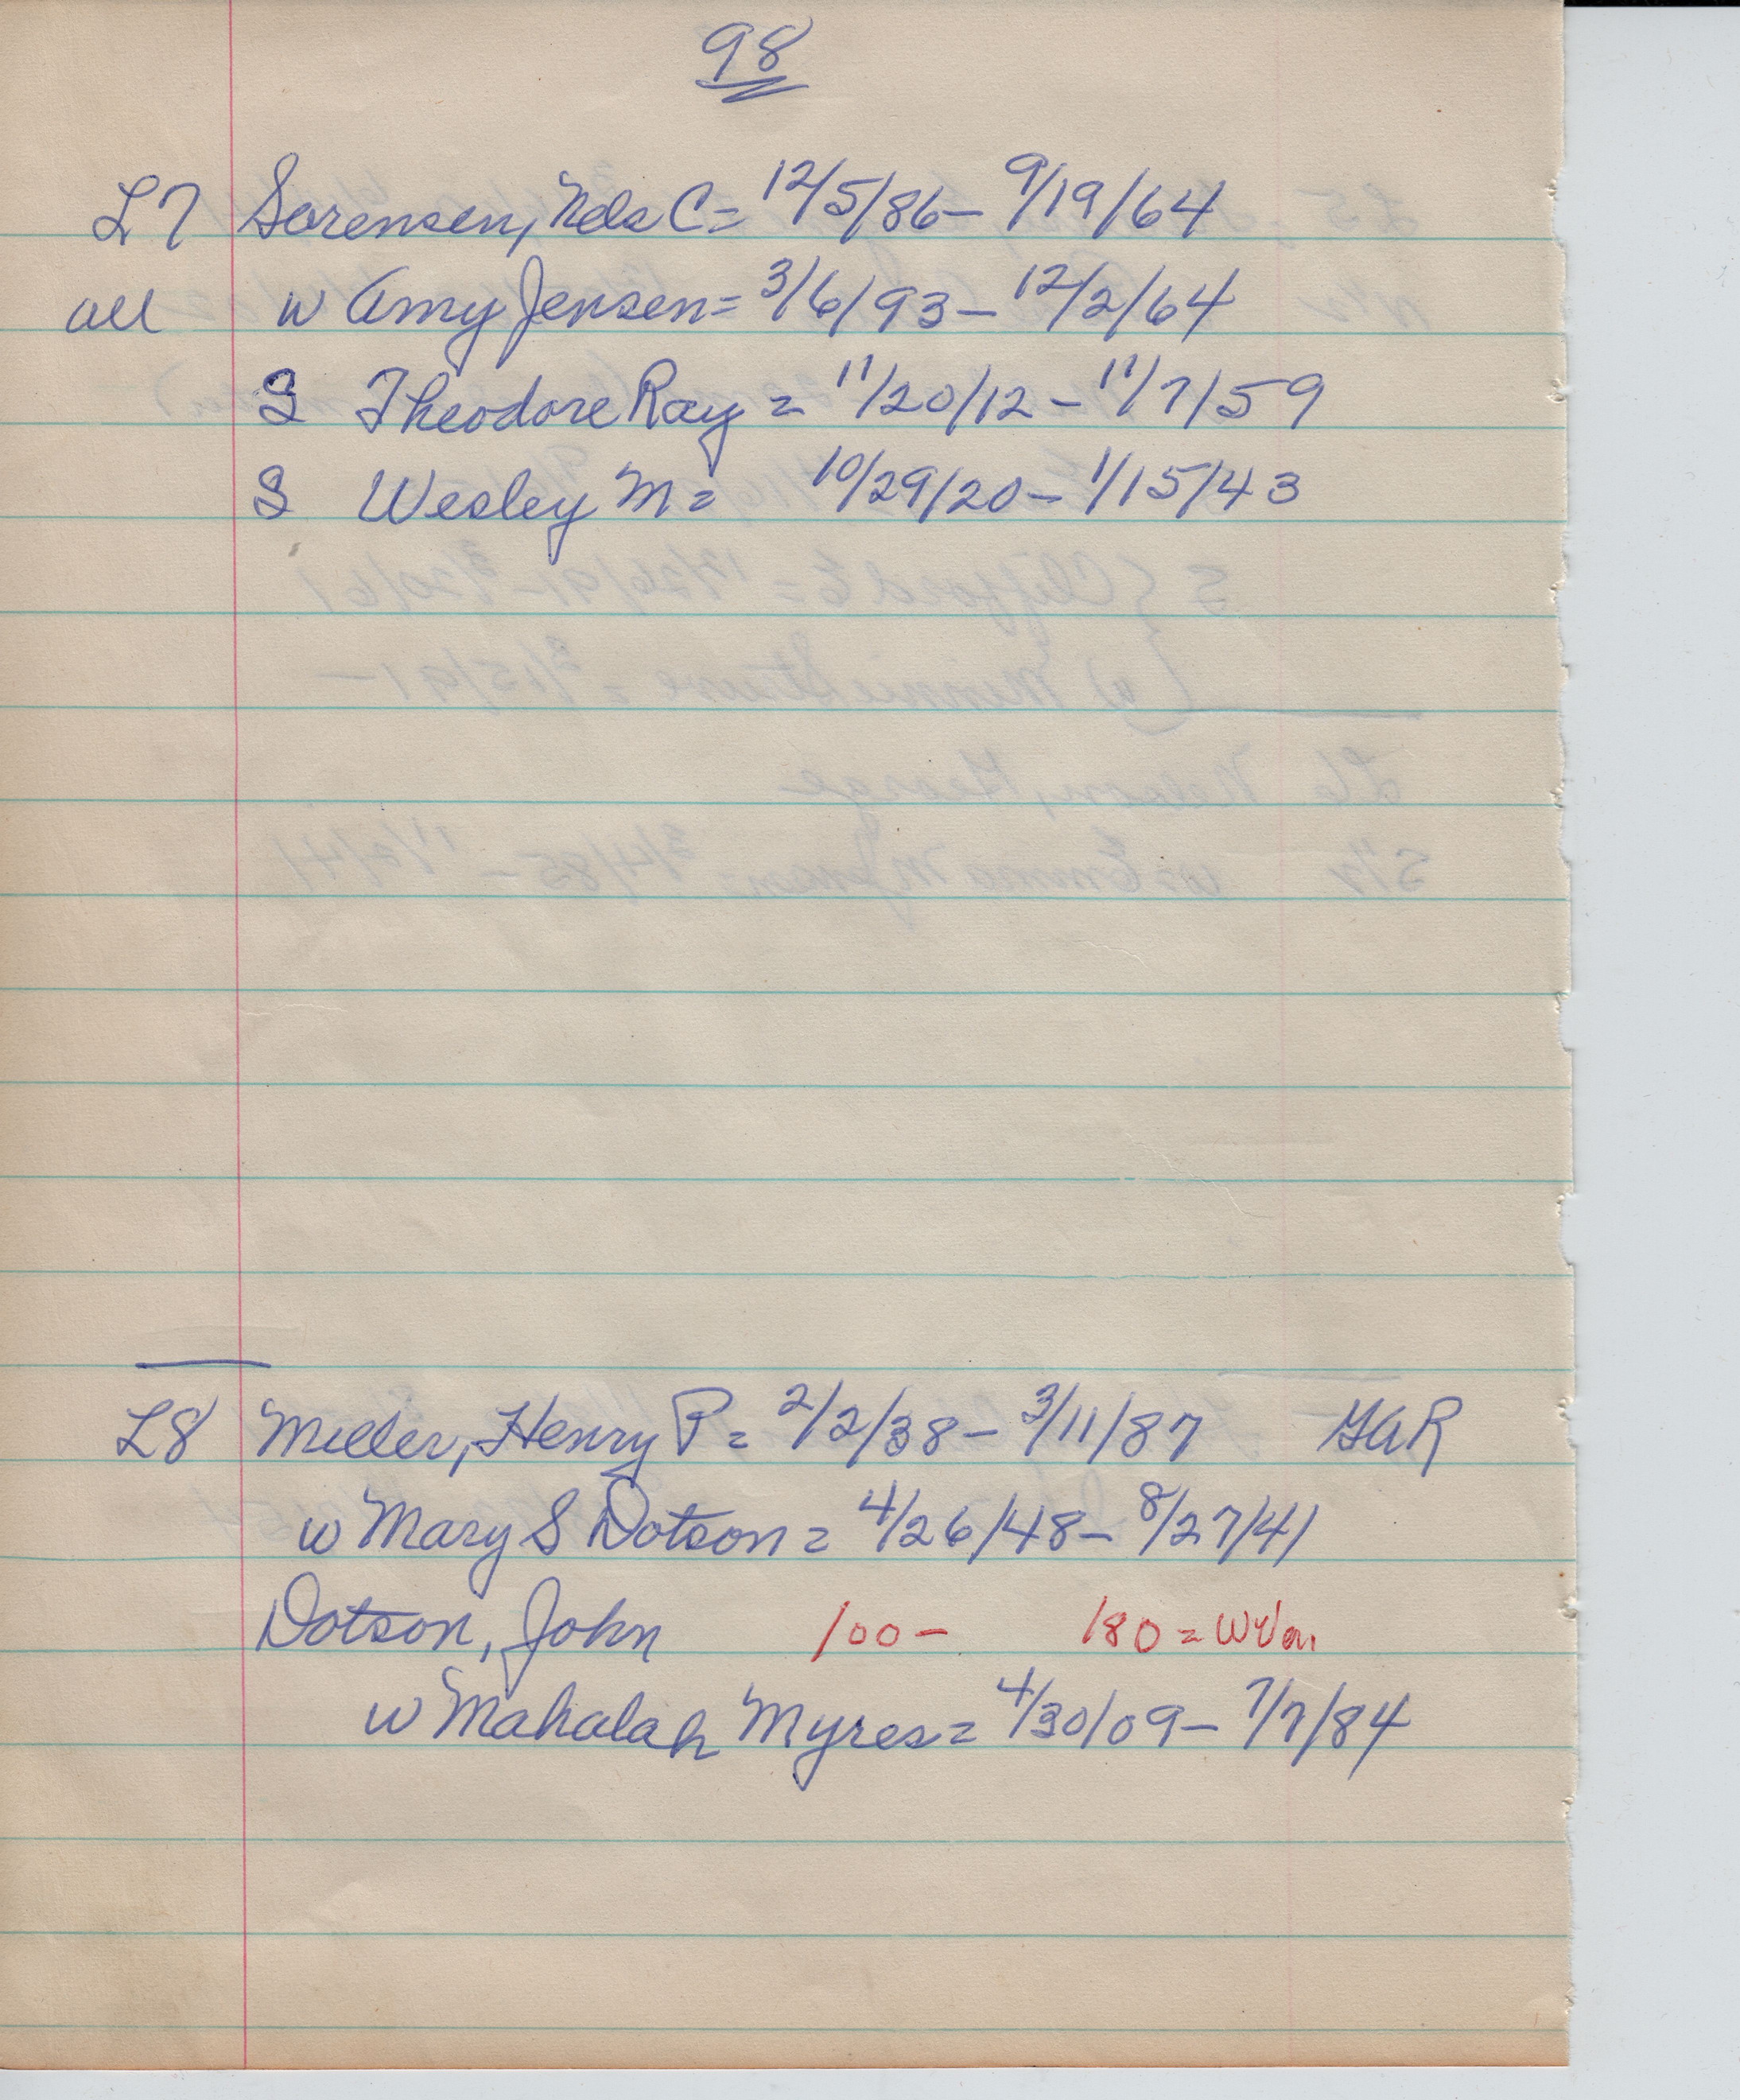 98
L7 Sorensen, Nels C = 12/5/86 – 9/19/64
all w Amy Jensen = 3/6/93 – 12/2/64
S Theodore Ray = 11/20/12 – 11/7/59
S Wesley M = 10/29/20 – 1/15/43
L8 Miller, Henry P = 2/2/38 – 3/11/87 GAR
w Mary S Dotson = 4/26/48 – 8/27/41
Dotson, John 100 – 180 =
w Mahalah Myres = 4/30/09 – 7/7/84